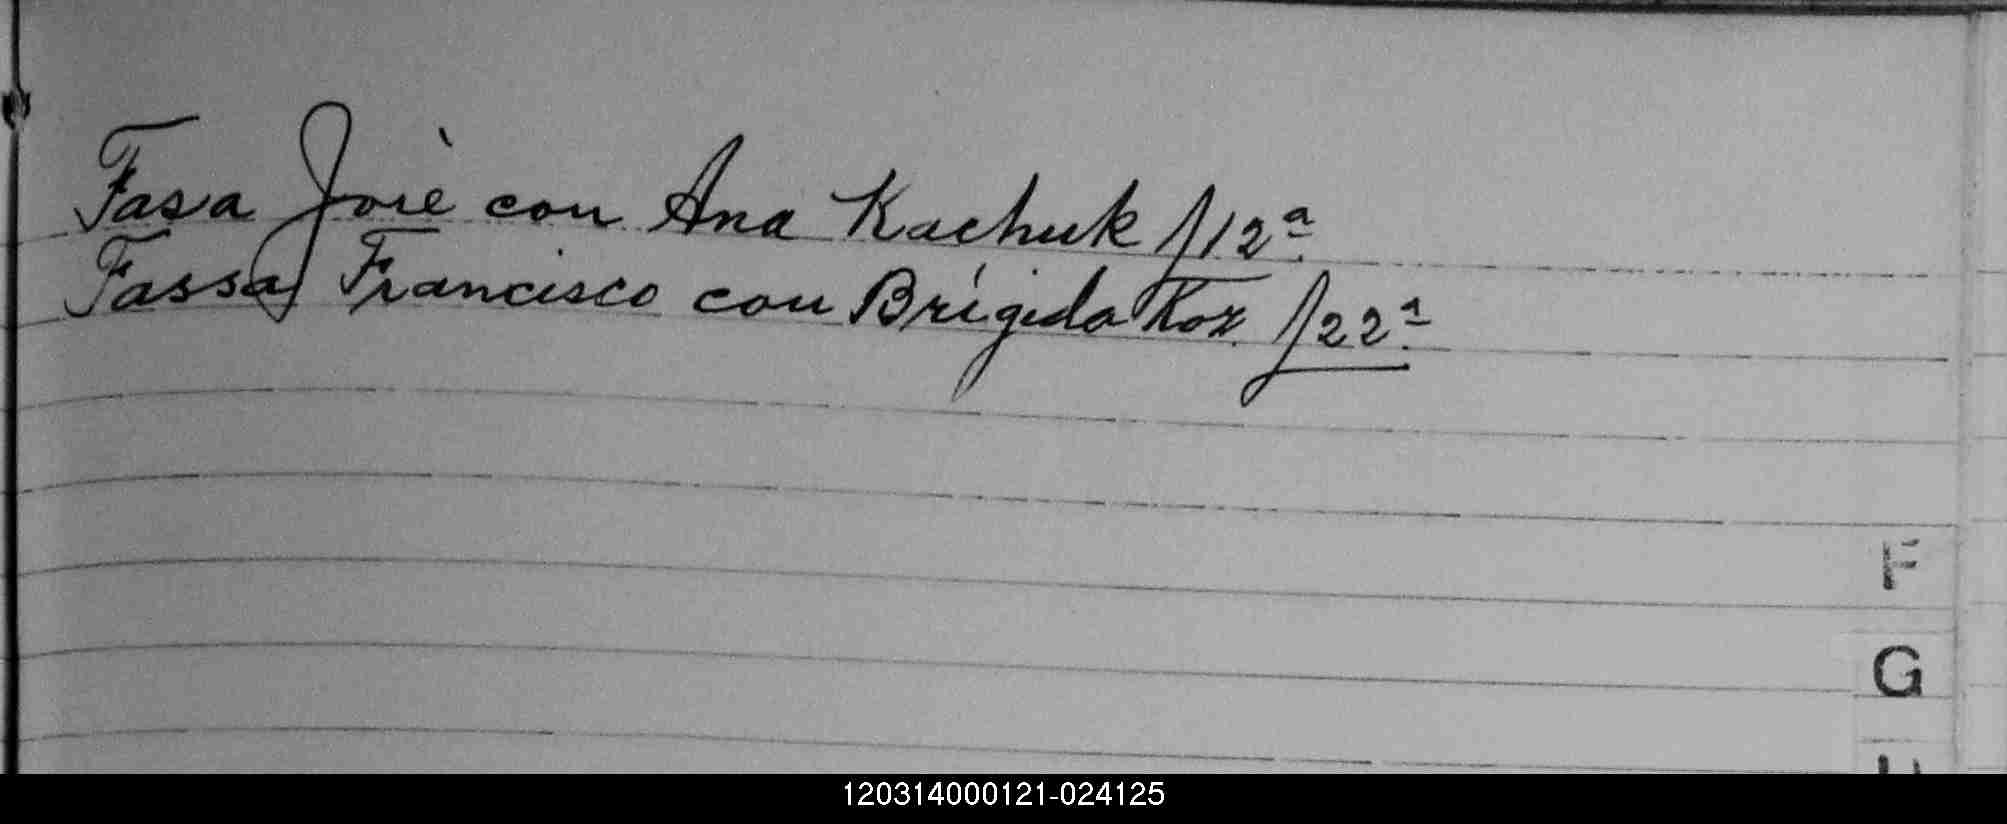 Fasa Josè con Ana Kachuk f/12ª
Fassa Francisco con Brígida Koz f/22ª
F
G
120314000121-024125